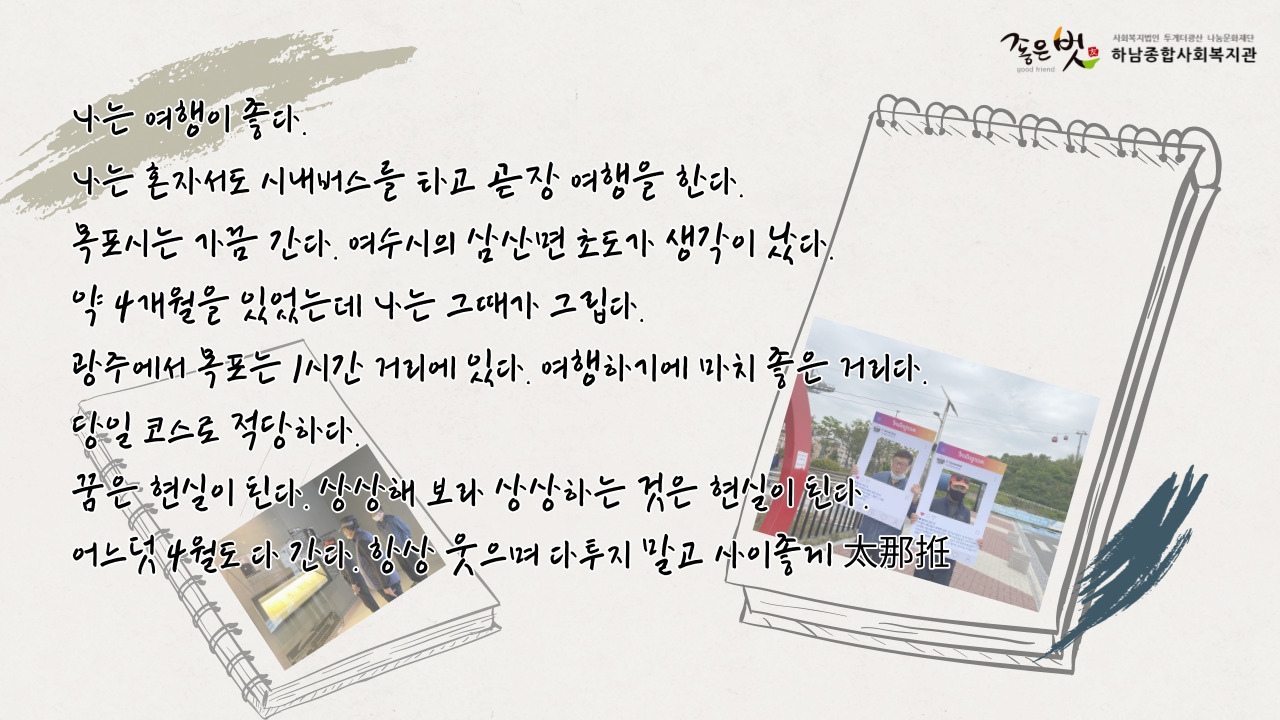 좋은 벗
good friend
사회복지법인 투게더광산 나눔문화재단
하남종합사회복지관
나는 여행이 좋다.
나는 혼자서도 시내버스를 타고 곧장 여행을 한다.
목포시는 가끔 간다. 여수시의 삼산면 초도가 생각이 났다.
약 4개월을 있었는데 나는 그때가 그립다.
광주에서 목포는 1시간 거리에 있다. 여행하기에 마치 좋은 거리다.
당일 코스로 적당하다.
꿈은 현실이 된다. 상상해 보라 상상하는 것은 현실이 된다.
어느덧 4월도 다 간다. 항상 웃으며 다투지 말고 사이좋게 太那拰